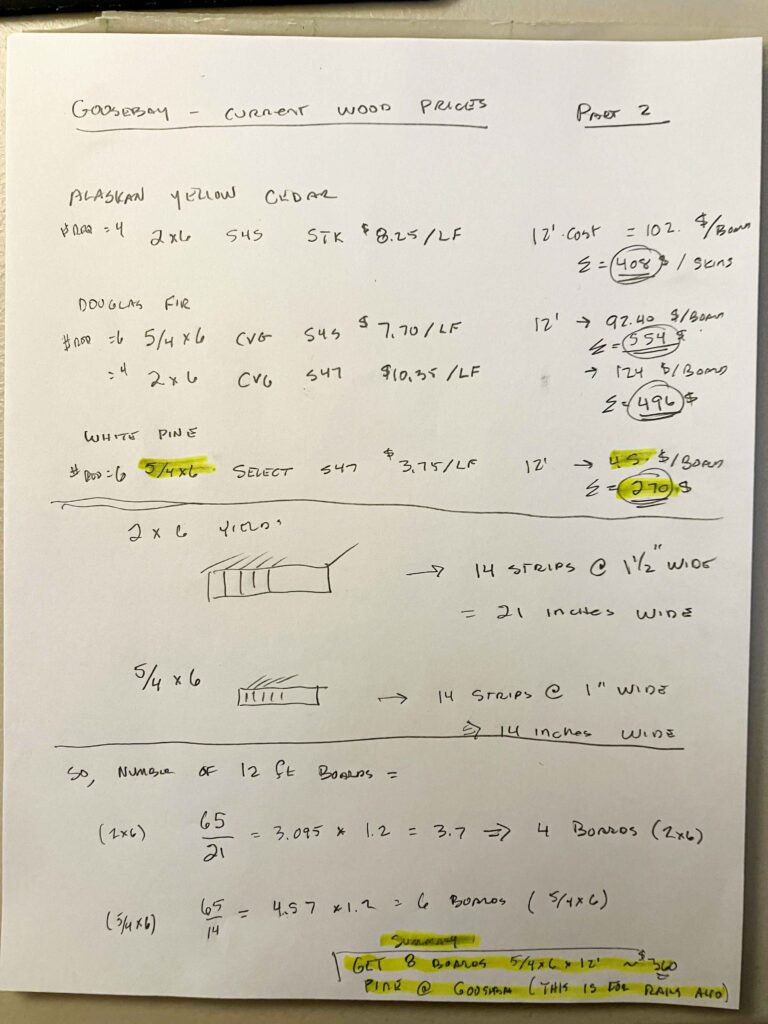 GOOSEBAY - CURRENT WOOD PRICES PART 2
ALASKAN YELLOW CEDAR
# REQ = 4 2x6 S4S STK $8.25/LF 12' COST = 102. $/BOARD
Σ = 408 $ / SKINS
DOUGLAS FIR
# REQ = 6 5/4 x 6 CVG S4S $7.70/LF 12' → 92.40 $/BOARD
Σ = 554 $
= 4 2x6 CVG S4S $10.35/LF → 124 $/BOARD
Σ = 496 $
WHITE PINE
# REQ = 6 5/4x6 SELECT S4S $3.75/LF 12' → 45. $/BOARD
Σ = 270 $
2 x 6 YIELD:
→ 14 STRIPS @ 1 1/2" WIDE
= 21 INCHES WIDE
5/4 x 6 → 14 STRIPS @ 1" WIDE
⇒ 14 INCHES WIDE
SO, NUMBER OF 12 ft BOARDS =
(2x6) 65/21 = 3.095 * 1.2 = 3.7 ⇒ 4 BOARDS (2x6)
(5/4x6) 65/14 = 4.57 * 1.2 = 6 BOARDS (5/4x6)
SUMMARY
GET 8 BOARDS 5/4x6x12' ~$360
PINE @ GOOSEBAY (THIS IS FOR RAILS ALSO)